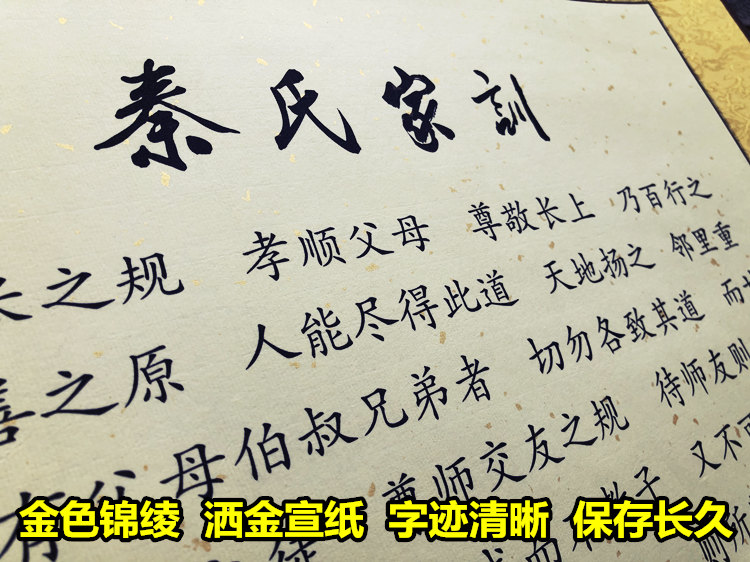 秦氏家訓
长之规 孝顺父母 尊敬长上 乃百行之
善之原 人能尽得此道 天地扬之 邻里重
有父母伯叔兄弟者 切勿各致其道 而
尊师交友之规 待师友则
子 又不可
金色锦绫 洒金宣纸 字迹清晰 保存长久